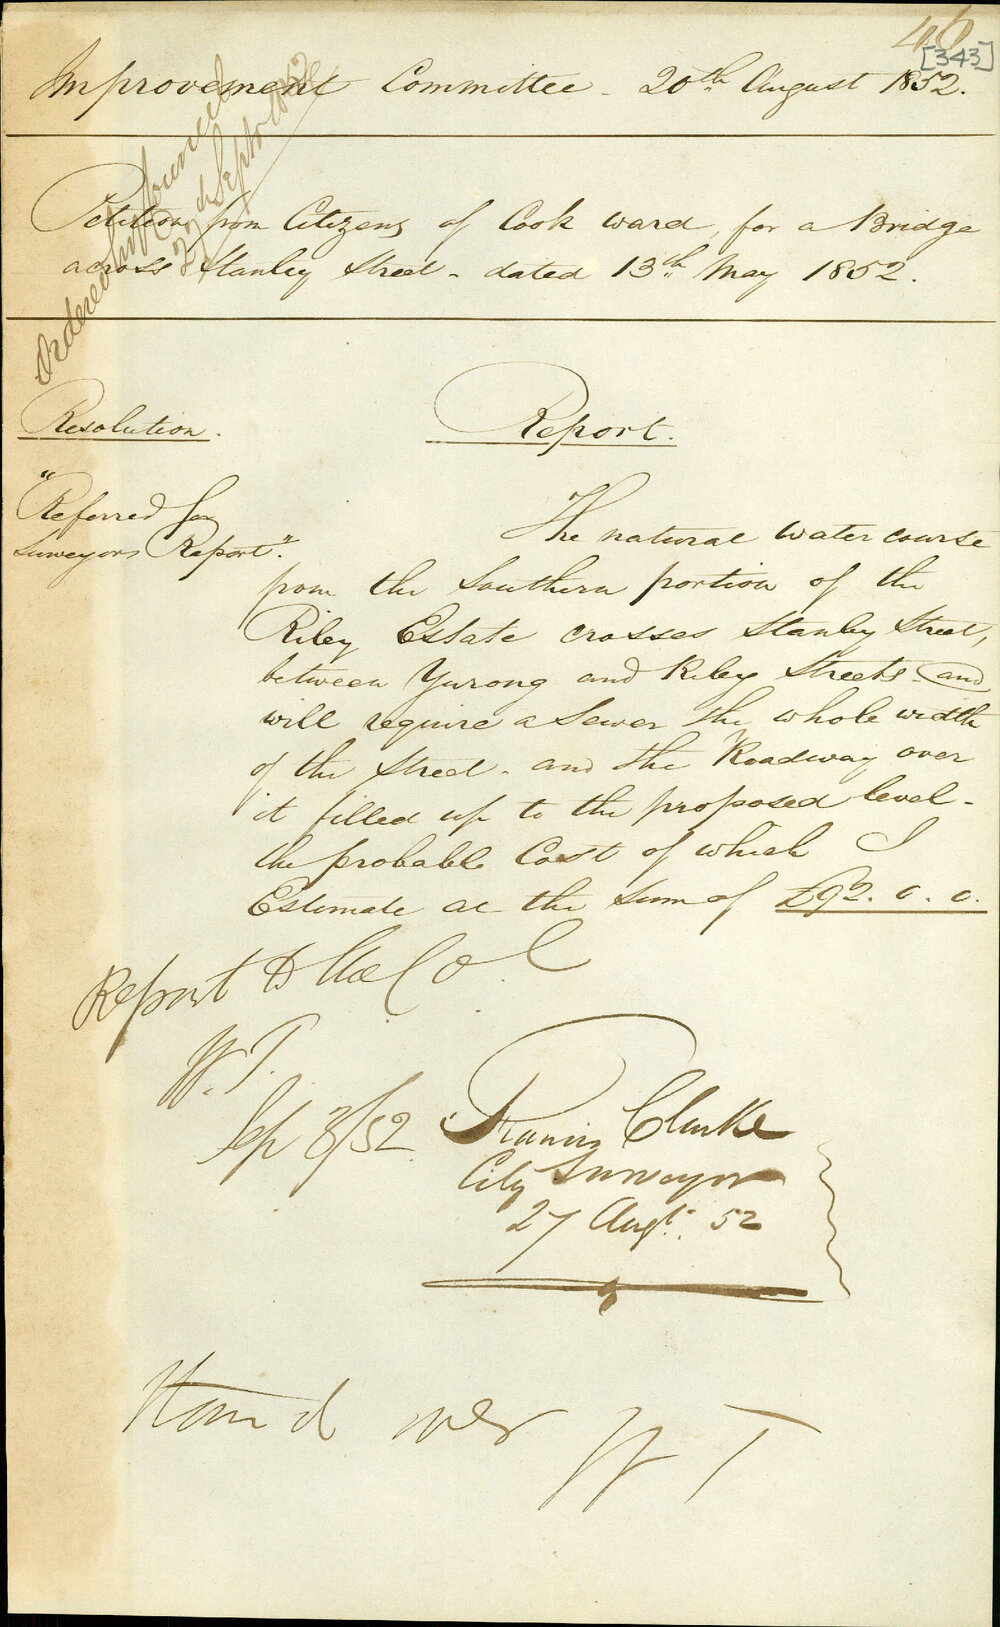 46
[343]
Improvement Committee - 20th August 1852.
Ordered in Council
27th Septbr 1852
Petition from Citizens of Cook ward, for a Bridge
across Stanley Street - dated 13th May 1852.
Resolution.
Report.
"Referred for
Surveyors Report".
The natural water course
from the Southern portion of the
Riley Estate crosses Stanley Street,
between Yurong and Riley Streets - and
will require a Sewer the whole width
of the Street - and the Roadway over
it filled up to the proposed level -
the probable Cost of which I
Estimate at the Sum of £92. 0. 0.
Report to the Col
W. T.
Sep 3/52
Francis Clarke
City Surveyor
27 Augt. 52
Stand over
W T